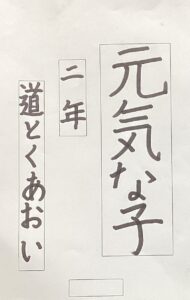 元気な子
二年
道とくあおい